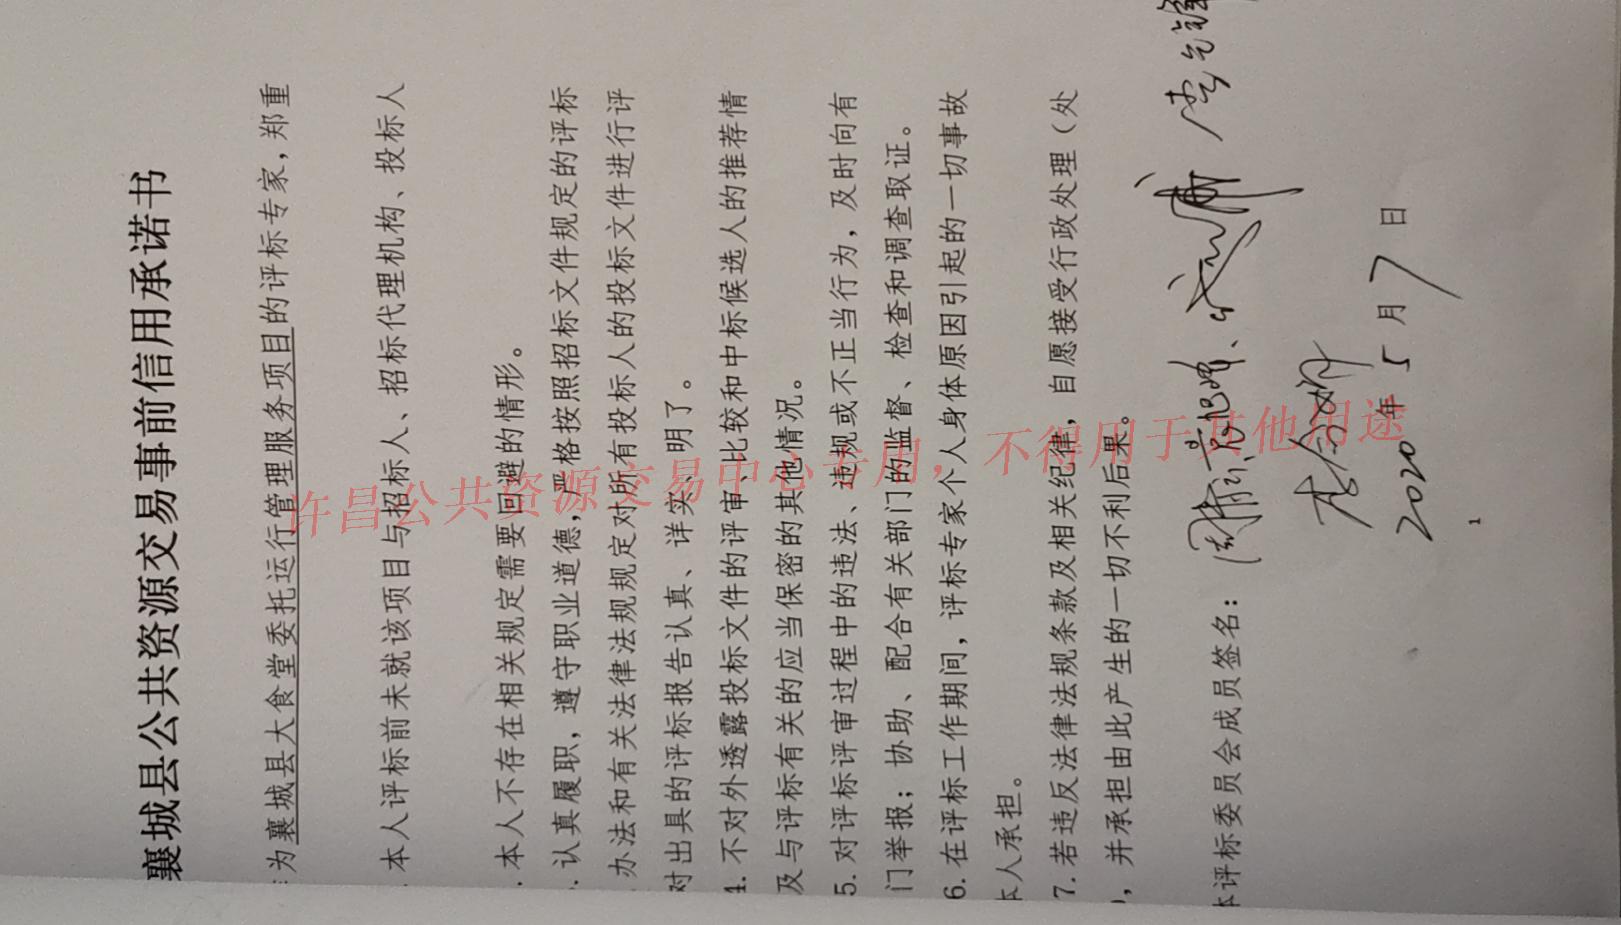 襄城县公共资源交易事前信用承诺书
为襄城县大食堂委托运行管理服务项目的评标专家，郑重
本人评标前未就该项目与招标人、招标代理机构、投标人
本人不存在相关规定需要回避的情形。
认真履职，遵守职业道德，严格按照招标文件规定的评标
办法和有关法律法规规定对所有投标人的投标文件进行评
对出具的评标报告认真、详实、明了。
4. 不对外透露投标文件的评审、比较和中标候选人的推荐情
及与评标有关的应当保密的其他情况。
5. 对评标评审过程中的违法、违规或不正当行为，及时向有
门举报；协助、配合有关部门的监督、检查和调查取证。
6. 在评标工作期间，评标专家个人身体原因引起的一切事故
本人承担。
7. 若违反法律法规条款及相关纪律，自愿接受行政处理（处
），并承担由此产生的一切不利后果。
本评标委员会成员签名：
2020年5月7日
1
许昌公共资源交易中心专用，不得用于其他用途